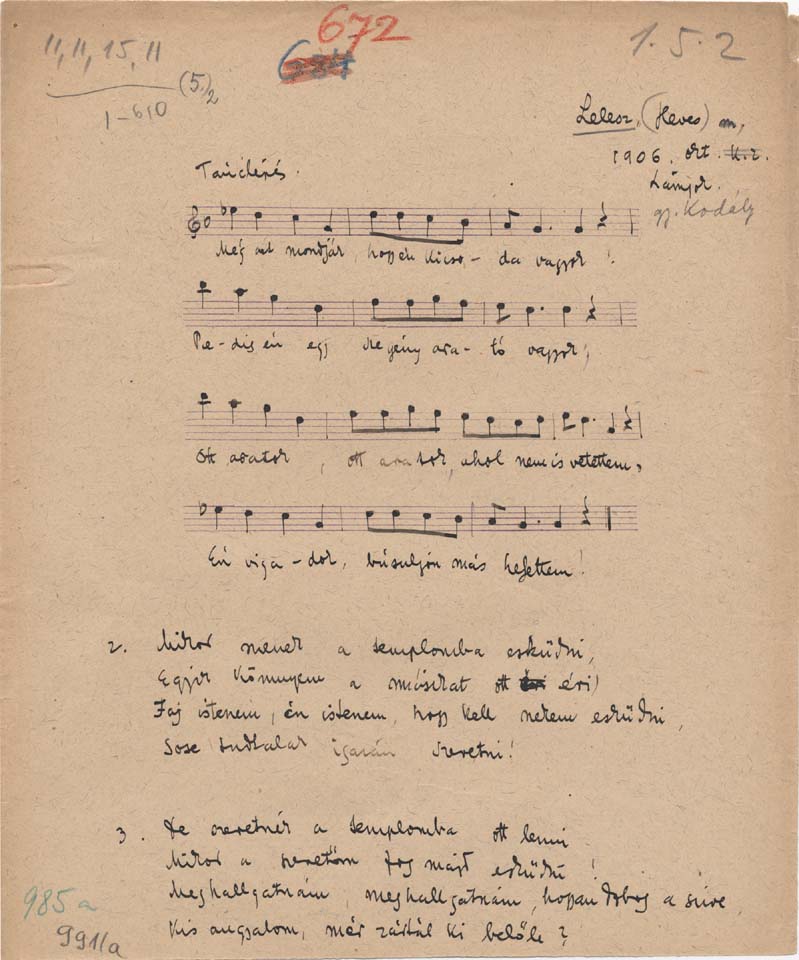 11, 11, 15, 11
(5.)2
1-610
672
684
1. 5. 2
Lelesz, (Heves) m,
1906. okt.
gy. Kodály
Tánclépés.
Még azt mondják, hogy én kicso - da vagyok!
Pe - dig én egy szegény ara - tó vagyok,
Ott aratok, ott aratok, ahol nem is vetettem,
Én viga - dok, búsuljon más helyettem!
2. Mikor menek a templomba esküdni,
Egyik könnyem a másikat ott éri,
Jaj istenem, én istenem, hogy kell nekem esküdni,
Sose tudtalak igazán szeretni!
3. De szeretnék a templomba ott lenni
Mikor a szeretőm fog majd esküdni!
Meghallgatnám, meghallgatnám, hogyan dobog a szive
Kis angyalom, mér zártál ki belőle?
985a
991/a